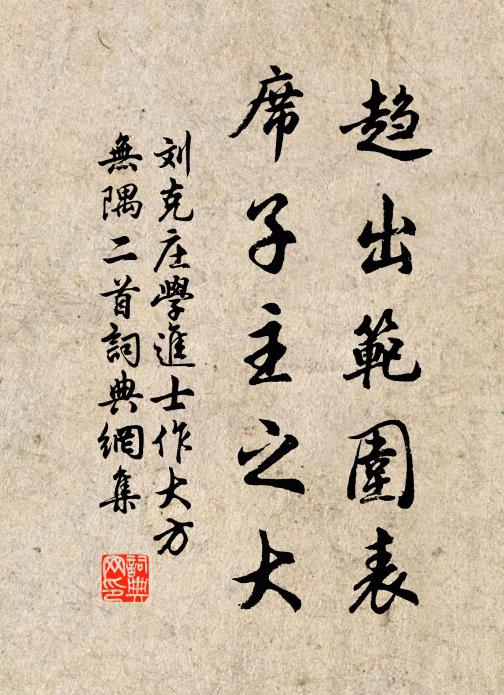 趋出範圍表
席子主之大
刘克庄學進士作大方
無隅二首詞典網集
詞典
网印